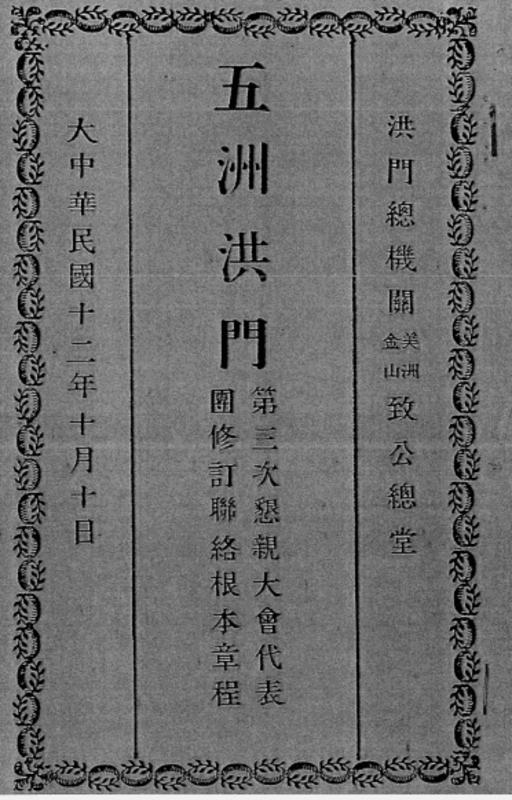 洪門總機關美洲金山致公總堂
五洲洪門
第三次懇親大會代表
團修訂聯絡根本章程
大中華民國十二年十月十日